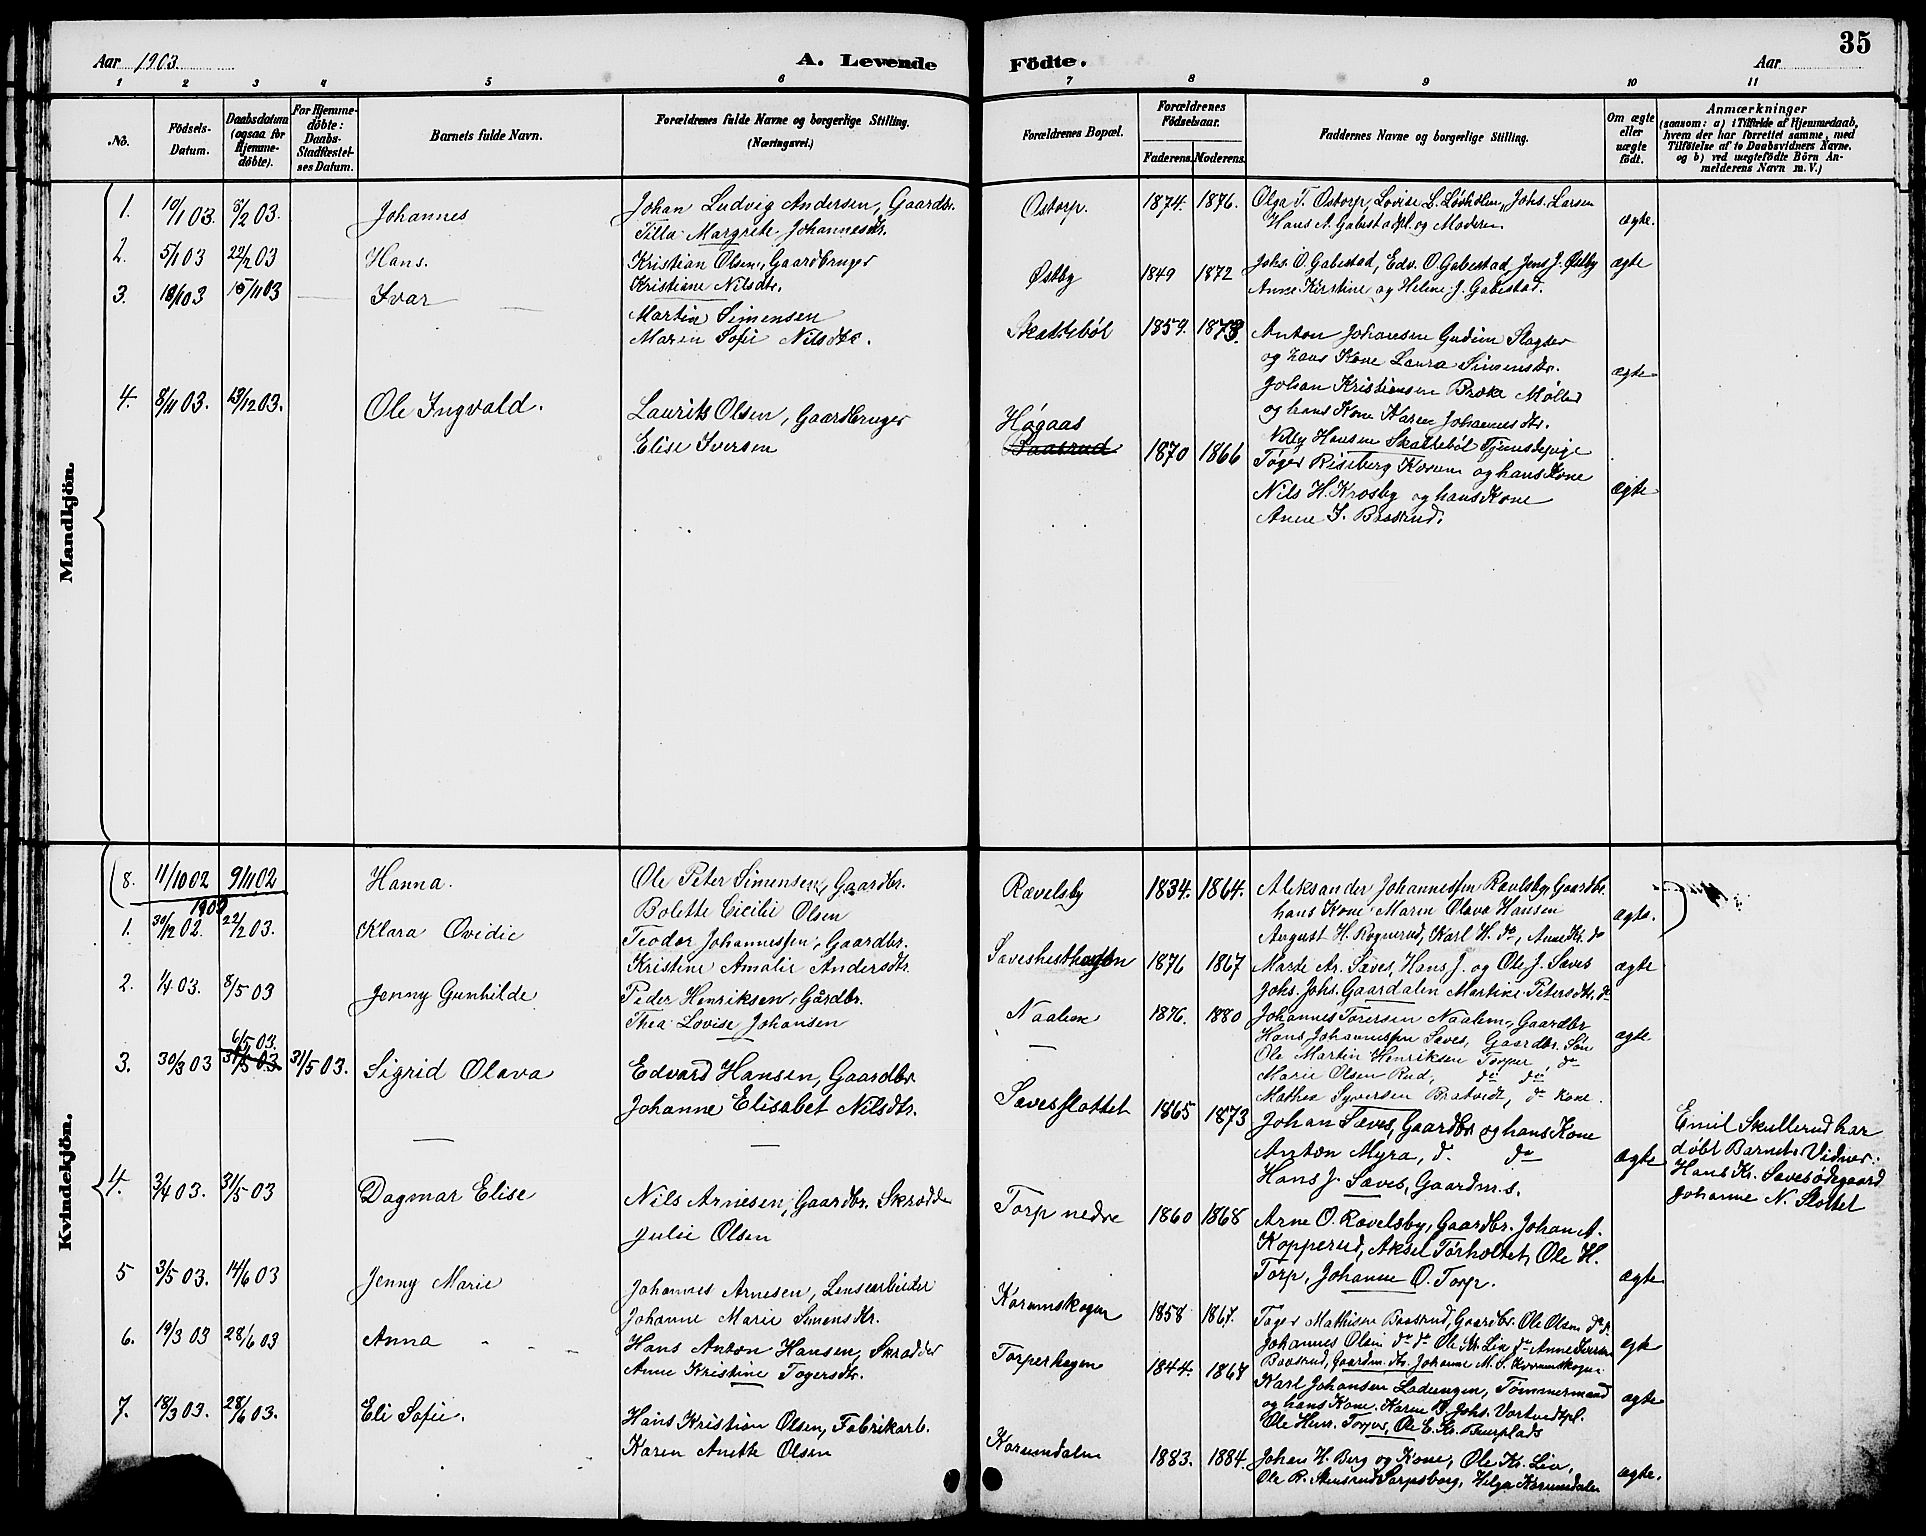 Aar 1903. A. Levende Födte. Aar 35
1 2 3 4 5 6 7 8 9 10 11
No.
Födsels-Datum.
Daabsdatum (ogsaa for Hjemme-döbte).
For Hjemme-döbte: Daabs-Stadfæstel-ses Datum.
Barnets fulde Navn.
Forældrenes fulde Navne og borgerlige Stilling.
(Næringsvei.)
Forældrenes Bopæl.
Forældrenes Födselsaar.
Faderens. Moderens.
Faddernes Navne og borgerlige Stilling.
Om ægte eller uægte födt.
Anmærkninger
(saasom: a) i Tilfælde af Hjemmedaab,
hvem der har forrettet samme, med
Tilföielse af to Daabsvidners Navne,
og b) ved uægtefödte Börn An-
melderens Navn m. V.)
Mandkjön.
1. 10/1 03 8/2 03. Johannes Johan Ludvig Andersen, Gaardbr. Ostorp. 1874. 1876. Olga T. Ostorp, Lovise L. Løkholen, Johs. Larsen
Tilla Margrete Johannesdtr. Hans A. Gabestadpl. og Moderen ægte.
2. 5/1 03 22/2 03 Hans. Kristian Olsen, Gaardbruger Østby 1849 1872 Johs. O. Gabestad, Edv. O. Gabestad, Jens J. Østby ægte
Kristiane Nilsdtr. Anne Kirstine og Helene J. Gabestad.
3. 18/1 03 15/11 03 Ivar Martin Simensen Skattebøl 1859. 1873. Anton Johansen Gudim Slagter
Maren Sofie Nilsdtr. og hans Kone Laura Simensdtr. ægte
Johan Kristiansen Broke Møller
og hans Kone Karen Johannesdtr.
Nelly Hansen Skattebøl Tjenestepige
4. 8/11 03. 13/12 03. Ole Ingvald. Laurits Olsen, Gaardbruger Høgaas
Elise Iversen Baasrud 1870 1866 Tøger Riseberg Korum og hans Kone
Nils H. Krosby og hans Kone ægte
Anne I. Baasrud.
Kvindekjön.
8. 11/10 02 9/11 02 Hanna. Ole Peter Simensen, Gaardbr. Rævelsby 1834. 1864. Aleksander Johannessen Rævelsby, Gaardbr.
Bolette Cicilie Olsen hans Kone Maren Olava Hansen ægte.
August H. Rognerud, Karl H. do, Anne Kr. do
1903
1. 30/12 02. 22/2 03. Klara Ovidie Teodor Johannessen, Gaardbr. 1876 1867 Marte Ar. Sæves, Hans J. og Ole J. Sæves ægte
Kristine Amalie Andersdtr. Johs. Johs. Gaardalen Martine Petersdtr. do
2. 1/4 03. 8/5 03 Jenny Gunhilde Peder Henriksen, Gårdbr. Naalem 1876. 1880 Johannes Torersen Naalem, Gaardbr.
Thea Lovise Johansen Hans Johannessen Sæves, Gaardbr. Søn ægte
Ole Martin Henriksen Torper, do
Marie Olsen Rud, do do
Mathea Syversen Bratvedt, do Kone.
3. 30/3 03 6/5 03. 31/5 03 31/5 03. Sigrid Olava Edvard Hansen, Gaardbr. Sævesflottet 1865 1873 Johan Sæves, Gaardbr. og hans Kone
Johanne Elisabet Nilsdtr. Anton Myra, d. do ægte
Hans J. Sæves, Gaardm. s.
Emil Skullerud har
døbt Barnet. Vidner:
Hans Kr. Sævesødegaard
Johanne N. Slottet
4. 3/4 03. 31/5 03 Dagmar Elise Nils Arnesen, Gaardbr. Skrædder Torp nedre 1860 1868 Arne O. Rævelsby, Gaardbr. Johan A.
Julie Olsen Kopperud, Aksel Torholtet, Ole H.
Torp, Johanne O. Torp. ægte
5 3/5 03. 14/6 03 Jenny Marie Johannes Arnesen, Lensearbeider Korumskogen 1858 1867. Tøger Mathisen Baasrud, Gaardbr. Ole Olsen do
Johanne Marie Simensdtr. Johannes Olsen do do Ole Kr. Lie do Anne ægte
Baasrud, Gaardm. dtr. Johanne M. S. Korumskogen
6. 19/3 03 28/6 03 Anna Hans Anton Hansen, Skrædder Torperhagen 1844. 1868 Karl Johansen Ladungen, Tømmermand
Anne Kristine Tøgersdtr. og hans Kone. Karen Johs. Vortvedtpl. ægte
Ole Henr. Torper, Ole E. Kr.
7. 18/3 03. 28/6 03. Eli Sofie. Hans Kristian Olsen, Fabrikarb. Korumdalen 1883. 1884. Johan H. Berg og Kone, Ole Kr. Lie,
Karen Anette Olsen Ole R. Stensrud Sarpsborg, Helga Korumdalen ægte.